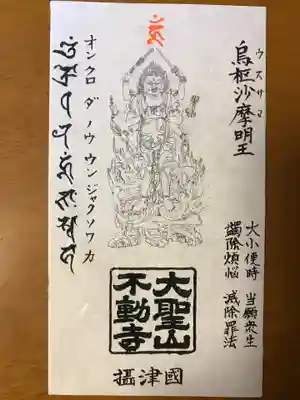 烏枢沙摩明王
ウスサマ
大小便時 当願衆生
蠲除煩悩 滅除罪法
オン クロ ダ ノウ ウン ジャク ソワ カ
大聖山
不動寺
攝津國